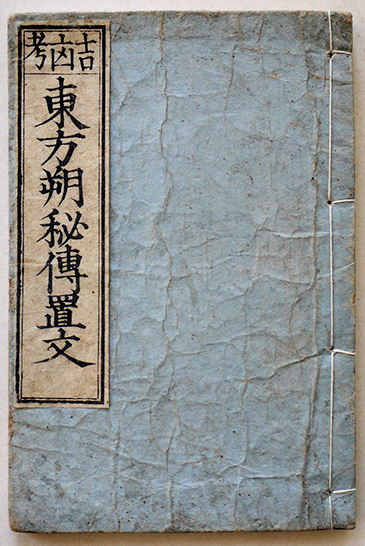 吉凶考
東方朔秘傳置文